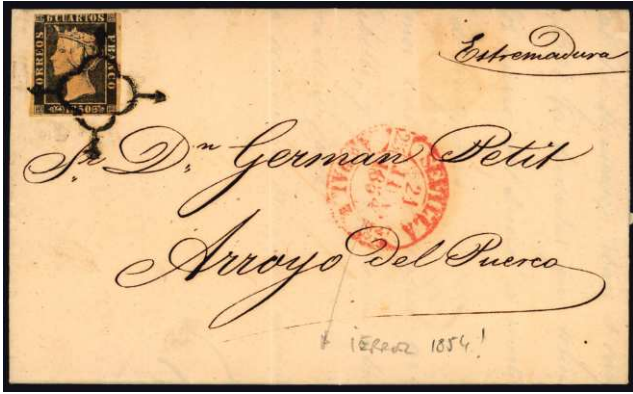 6 CUARTOS
CORREOS
FRANCO
1850
Estremadura
Sr. Dn German Petit
SEVILLA
21
Arroyo del Puerco
¡ERROR 1854!